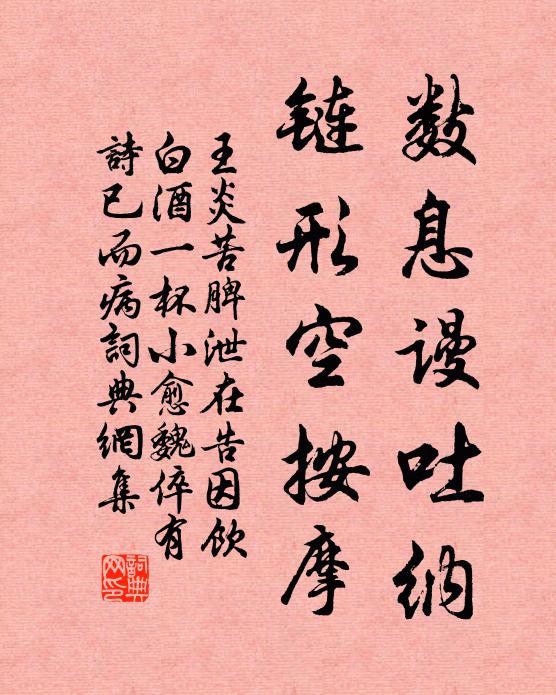 数息謾吐纳
鏈形空按摩
王炎苦脾泄在告因飲
白酒一杯小愈魏倅有
詩已而病詞典網集
詞典
网印